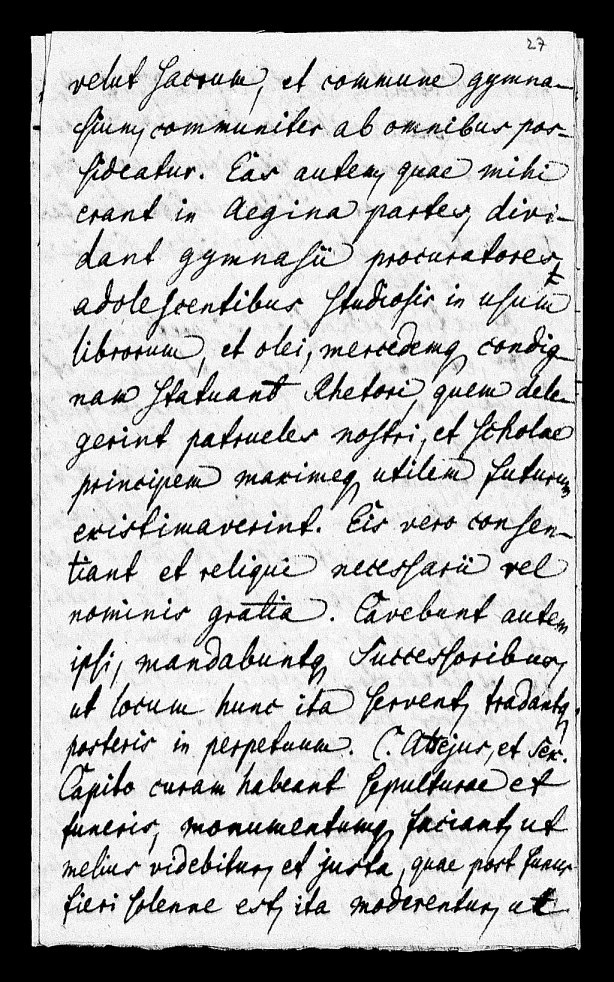 27
velut sacrum, et commune gymna-
sium, communiter ab omnibus pos-
sideatur. Eas autem, quae mihi
erant in Aegina partes, divi-
dant gymnasii procuratores,
adolescentibus studiosis in usum
librorum, et olei, mercedemq condig-
nam statuant Rhetori, quem dele-
gerint patrueles nostri, et scholae
principem maximeq utilem futurum
existimaverint. Eis vero consen-
tiant et reliqui necessarii vel
nominis gratia. Cavebunt autem
ipsi, mandabuntq successoribus,
ut locum hunc ita servent, tradantq
posteris in perpetuum. C. Attejus, et Sex.
Capito curam habeant sepulturae et
funeris, monumentumq faciant, ut
melius videbitur, et justa, quae post funus
fieri solenne est, ita moderentur, ut